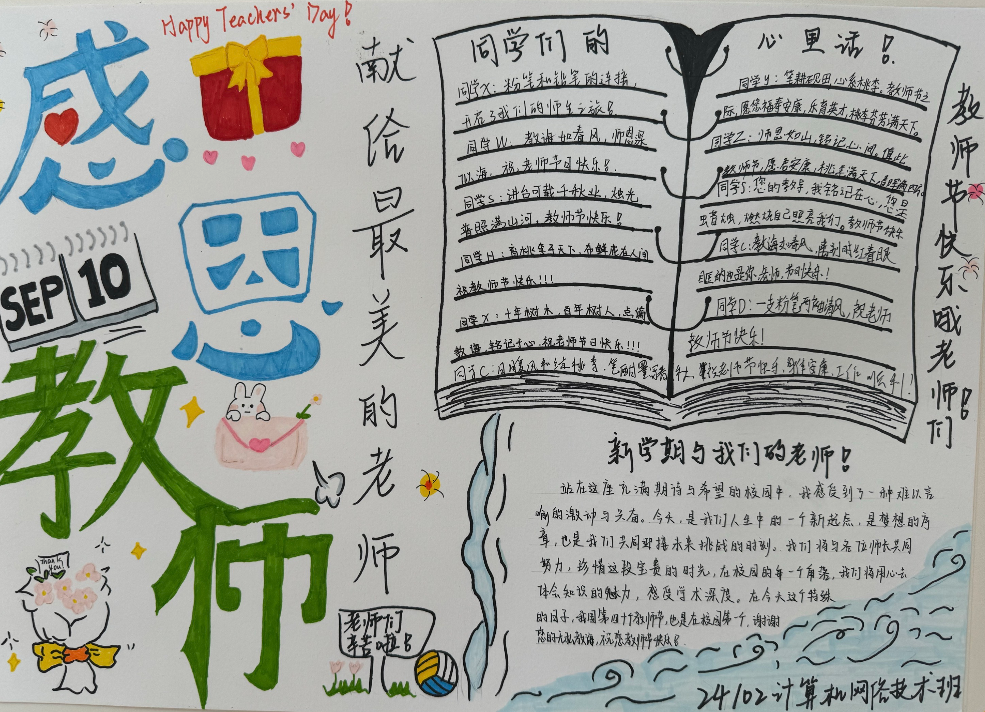 Happy Teachers' Day!
感恩
教师
SEP 10
THANK YOU!
献给最美的老师
同学们的心里话!
同学X:粉笔和铅笔的连接,
开启了我们的师生之旅!
同学W:教诲如春风,师恩深
似海,祝老师节日快乐!
同学S:讲台可载千秋业,烛光
普照满山河,教师节快乐!
同学H:育桃李于天下,
祝教师节快乐!!!
同学X:十年树木,百年树人,点滴
教诲,铭记于心,祝老师节日快乐!!!
同学C:
同学Y:笔耕砚田心系桃李,教师节之
际,愿您福寿安康,乐育英才,桃李芬芳满天下。
同学Z:师恩如山,铭记心间,值此
教师节,愿君安康,桃李满天下,
同学S:您的教导,我铭记在心,您是
照亮我们。教师节快乐
同学L:教诲如春风,
节日快乐!
同学D:一支粉笔两袖清风,祝老师
教师节快乐!
教师节快乐哦老师们!
新学期与我们的老师!
站在这座充满期待与希望的校园中,我感受到了一种难以言
喻的激动与兴奋。今天,是我们人生中的一个新起点,是梦想的序
章,也是我们共同迎接未来挑战的时刻。我们将与各位师长共同
努力,珍惜这段宝贵的时光,在校园的每一个角落,我们将用心去
体会知识的魅力,感受学术深度。在今天这个特殊
的日子,我国第四十个教师节,也是在校园第一个,谢谢
您的教诲,祝您教师节快乐!
老师们
辛苦啦!
24102计算机网络技术班